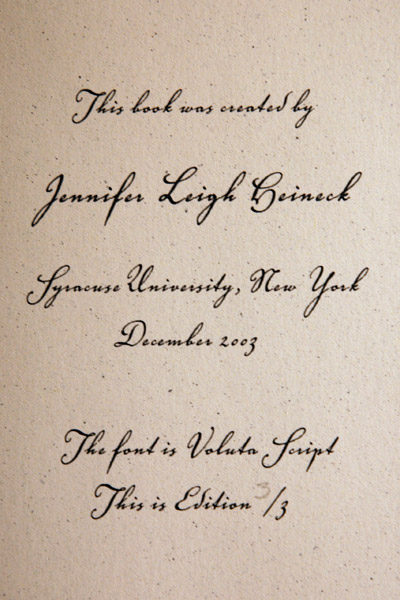 This book was created by
Jennifer Leigh Heineck
Syracuse University, New York
December 2003
The font is Voluta Script
This is Edition 3/3